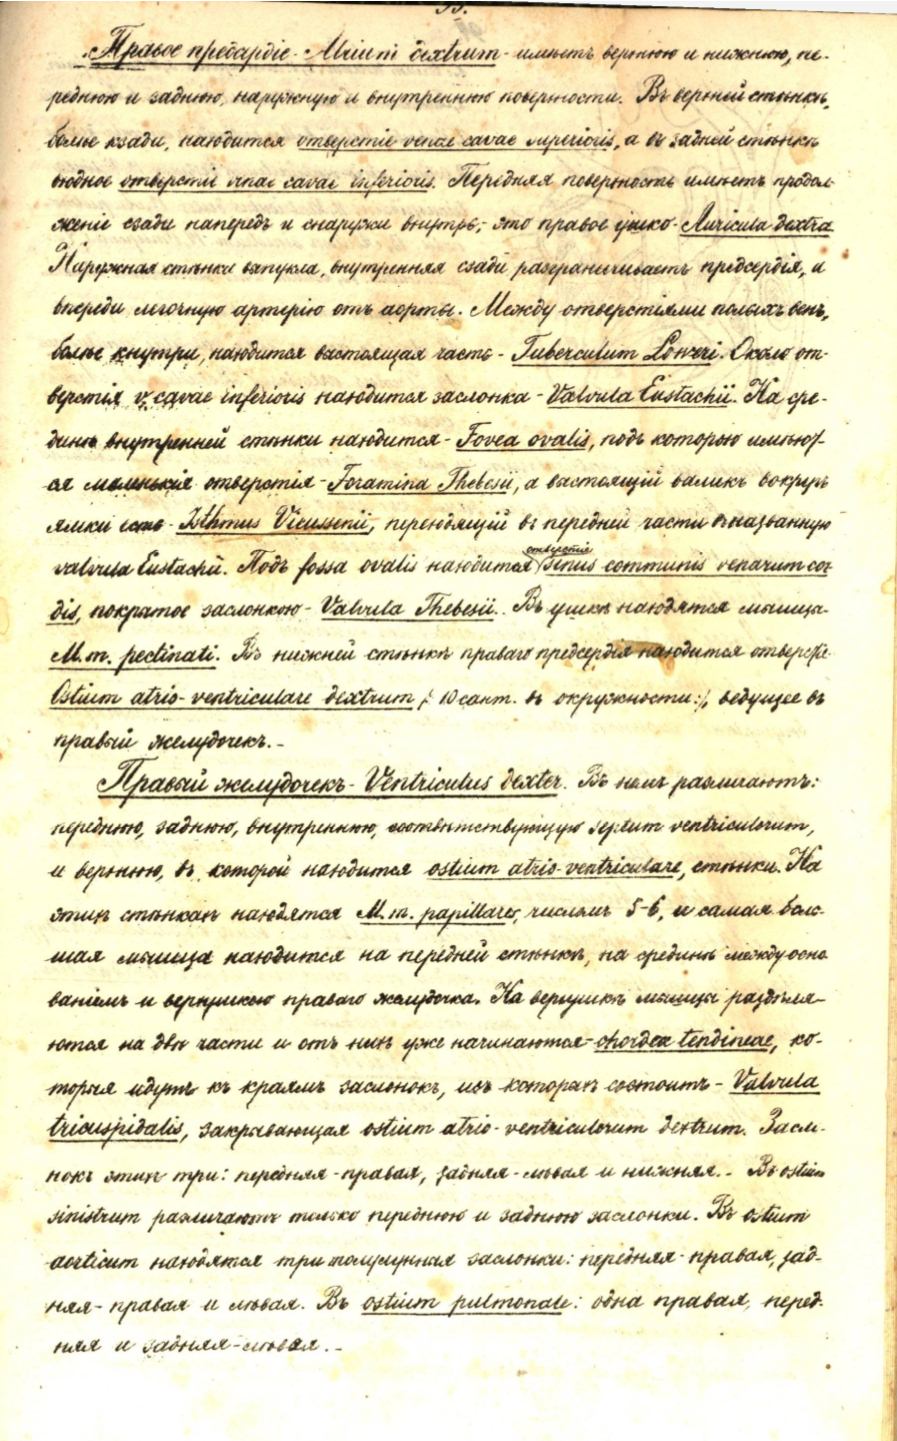 Правое предсердіе - Atrium dextrum - имѣетъ верхнюю и нижнюю, пе-
реднюю и заднюю, наружную и внутреннюю поверхности. Въ верхней стѣнкѣ,
болѣе кзади, находится отверстіе venae cavae superioris, а въ задней стѣнкѣ
входное отверстіе venae cavae inferioris. Передняя поверхность имѣетъ продол-
женіе сзади напередъ и снаружи внутрь, - это правое ушко - Auricula dextra
Наружная стѣнка выпукла, внутренняя сзади разграничиваетъ предсердія, а
впереди легочную артерію отъ аорты. Между отверстіями полыхъ венъ,
болѣе кнутри, находится выстоящая часть - Tuberculum Loweri. Около от-
верстія v. cavae inferioris находится заслонка - Valvula Eustachii. На сре-
динѣ внутренней стѣнки находится - Fovea ovalis, подъ которою имѣют-
ся маленькія отверстія - Foramina Thebesii, а выстоящій валикъ вокругъ
ямки есть - Isthmus Vieussenii, переходящій въ передней части въ названную
valvula Eustachii. Подъ fossa ovalis находится отверстіе sinus communis venarum cor-
dis, покрытое заслонкою - Valvula Thebesii. Въ ушкѣ находятся мышцы -
M. m. pectinati. Въ нижней стѣнкѣ праваго предсердія находится отверстіе
Ostium atrio-ventriculare dextrum /: 10 сант. въ окружности:/, ведущее въ
правый желудочекъ. -
Правый желудочекъ - Ventriculus dexter. Въ немъ различаютъ:
переднюю, заднюю, внутреннюю, соотвѣтствующую septum ventriculorum,
и верхнюю, въ которой находится ostium atrio-ventriculare, стѣнки. На
этихъ стѣнкахъ находятся M. m. papillares, числомъ 5-6, и самая боль-
шая мышца находится на передней стѣнкѣ, на срединѣ между осно
ваніемъ и верхушкою праваго желудочка. На верхушкѣ мышцы раздѣля-
ются на двѣ части и отъ нихъ уже начинаются - chordea tendineae, ко-
торыя идутъ къ краямъ заслонокъ, изъ которыхъ состоитъ - Valvula
tricuspidalis, закрывающая ostium atrio-ventriculorum dextrum. Засло-
нокъ этихъ три: передняя - правая, задняя - лѣвая и нижняя. - Въ ostium
sinistrum различаютъ только переднюю и заднюю заслонки. Въ ostium
aorticum находятся три полулунныя заслонки: передняя - правая, зад-
няя - правая и лѣвая. Въ ostium pulmonale: одна правая, перед-
няя и задняя - лѣвая. -